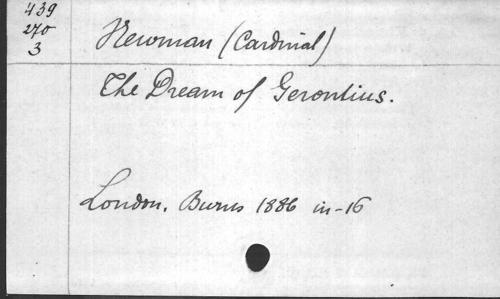 439
270
3
Newman (Cardinal)
The Dream of Gerontius.
London, Burns 1886 in-16